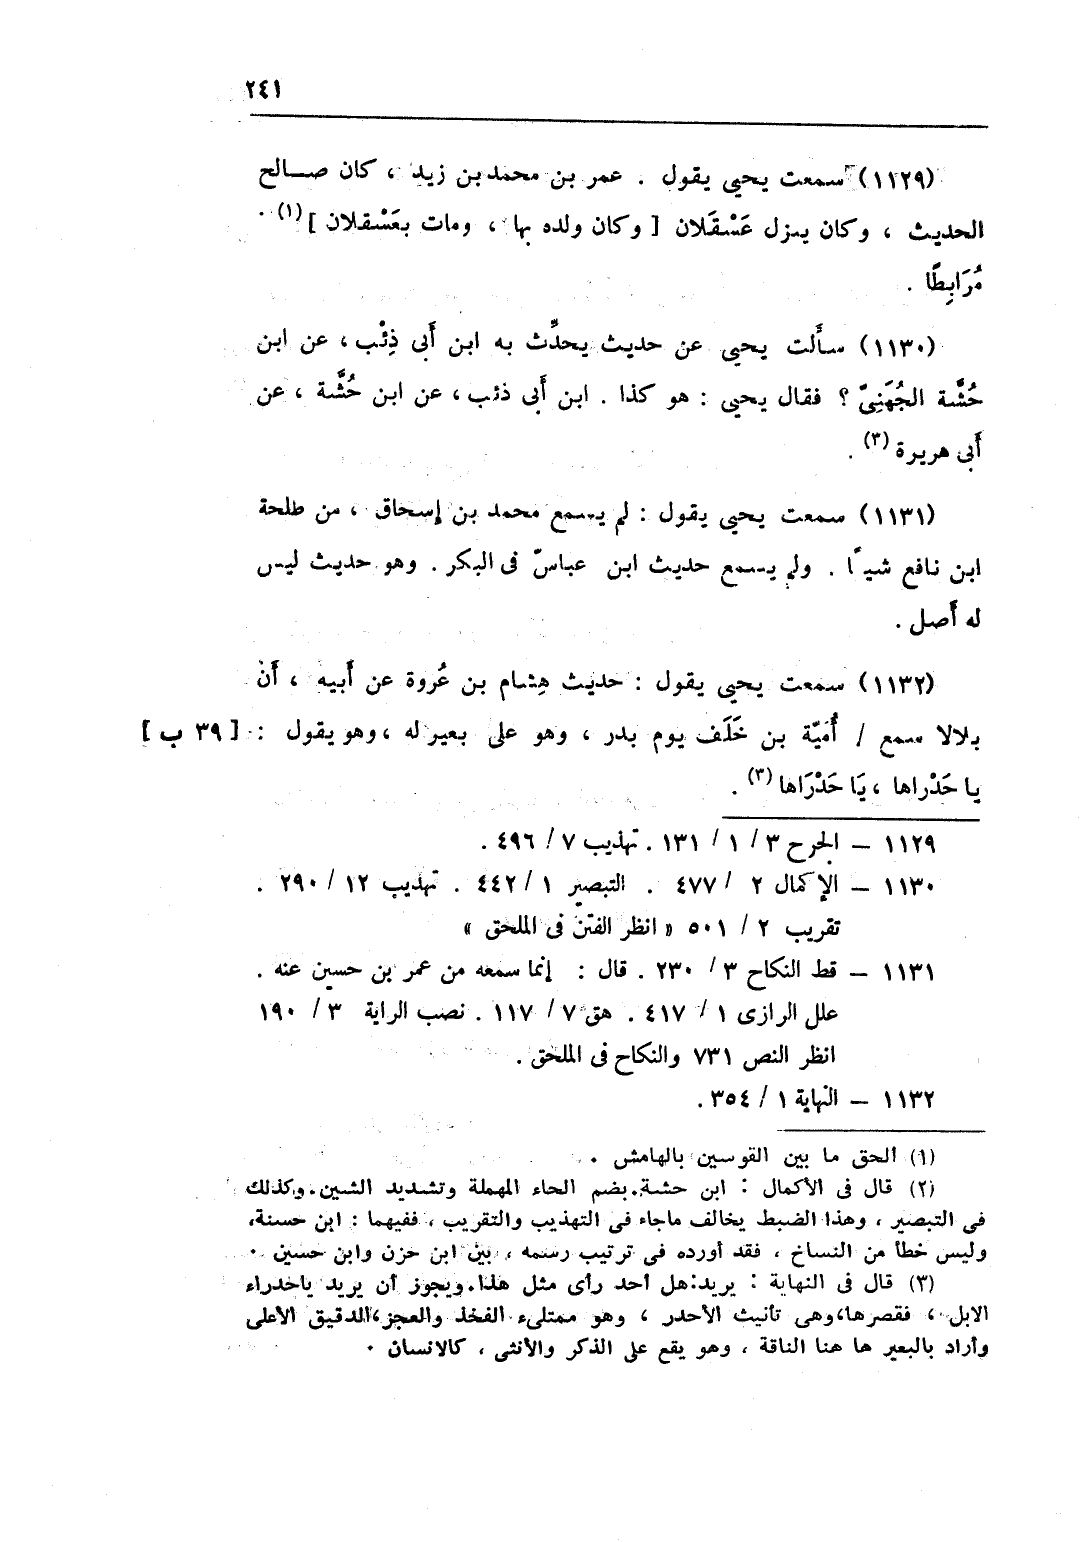 ٢٤١
(١١٢٩) سمعت يحيى يقول . عمر بن محمد بن زيد ، كان صالح
الحديث ، وكان ينزل عَسْقَلان [ وكان ولده بها ، ومات بعَسْقلان ] (١) .
مُرَابِطًا .
(١١٣٠) سأَلت يحيى عن حديث يحدِّث به ابن أَبى ذِئْب ، عن ابن
حُشَّة الجُهَنِىّ ؟ فقال يحيى : هو كذا . ابن أَبى ذئب ، عن ابن حُشَّة ، عن
أَبى هريرة (٣) .
(١١٣١) سمعت يحيى يقول : لم يسمع محمد بن إسحاق ، من طلحة
ابن نافع شيئًا . ولم يسمع حديث ابن عباس فى البكر . وهو حديث ليس
له أَصل .
(١١٣٢) سمعت يحيى يقول : حديث هِشام بن عُروة عن أَبيه ، أَن
بلالا سمع / أُمَيّة بن خَلَف يوم بدر ، وهو على بعير له ، وهو يقول : [ ٣٩ ب ]
يا حَدْراها ، يَا حَدْرَاها (٣) .
١١٢٩ – الجرح ٣ / ١ / ١٣١ . تهذيب ٧ / ٤٩٦ .
١١٣٠ – الإكمال ٢ / ٤٧٧ . التبصير ١ / ٤٤٢ . تهذيب ١٢ / ٢٩٠ .
تقريب ٢ / ٥٠١ « انظر الفتن فى الملحق »
١١٣١ – قط النكاح ٣ / ٢٣٠ . قال : إنما سمعه من عمر بن حسين عنه .
علل الرازى ١ / ٤١٧ . هق ٧ / ١١٧ . نصب الراية ٣ / ١٩٠
انظر النص ٧٣١ والنكاح فى الملحق .
١١٣٢ – النهاية ١ / ٣٥٤ .
(١) الحق ما بين القوسين بالهامش .
(٢) قال فى الأكمال : ابن حشة . بضم الحاء المهملة وتشديد الشين . وكذلك
فى التبصير ، وهذا الضبط يخالف ماجاء فى التهذيب والتقريب ، ففيهما : ابن حسنة،
وليس خطأ من النساخ ، فقد أورده فى ترتيب رسمه ، بين ابن حزن وابن حسين .
(٣) قال فى النهاية : يريد:هل أحد رأى مثل هذا . ويجوز أن يريد ياحدراء
الابل ، فقصرها،وهى تأنيث الأحدر ، وهو ممتلىء الفخذ والعجز،الدقيق الأعلى
وأراد بالبعير ها هنا الناقة ، وهو يقع على الذكر والأنثى ، كالانسان .